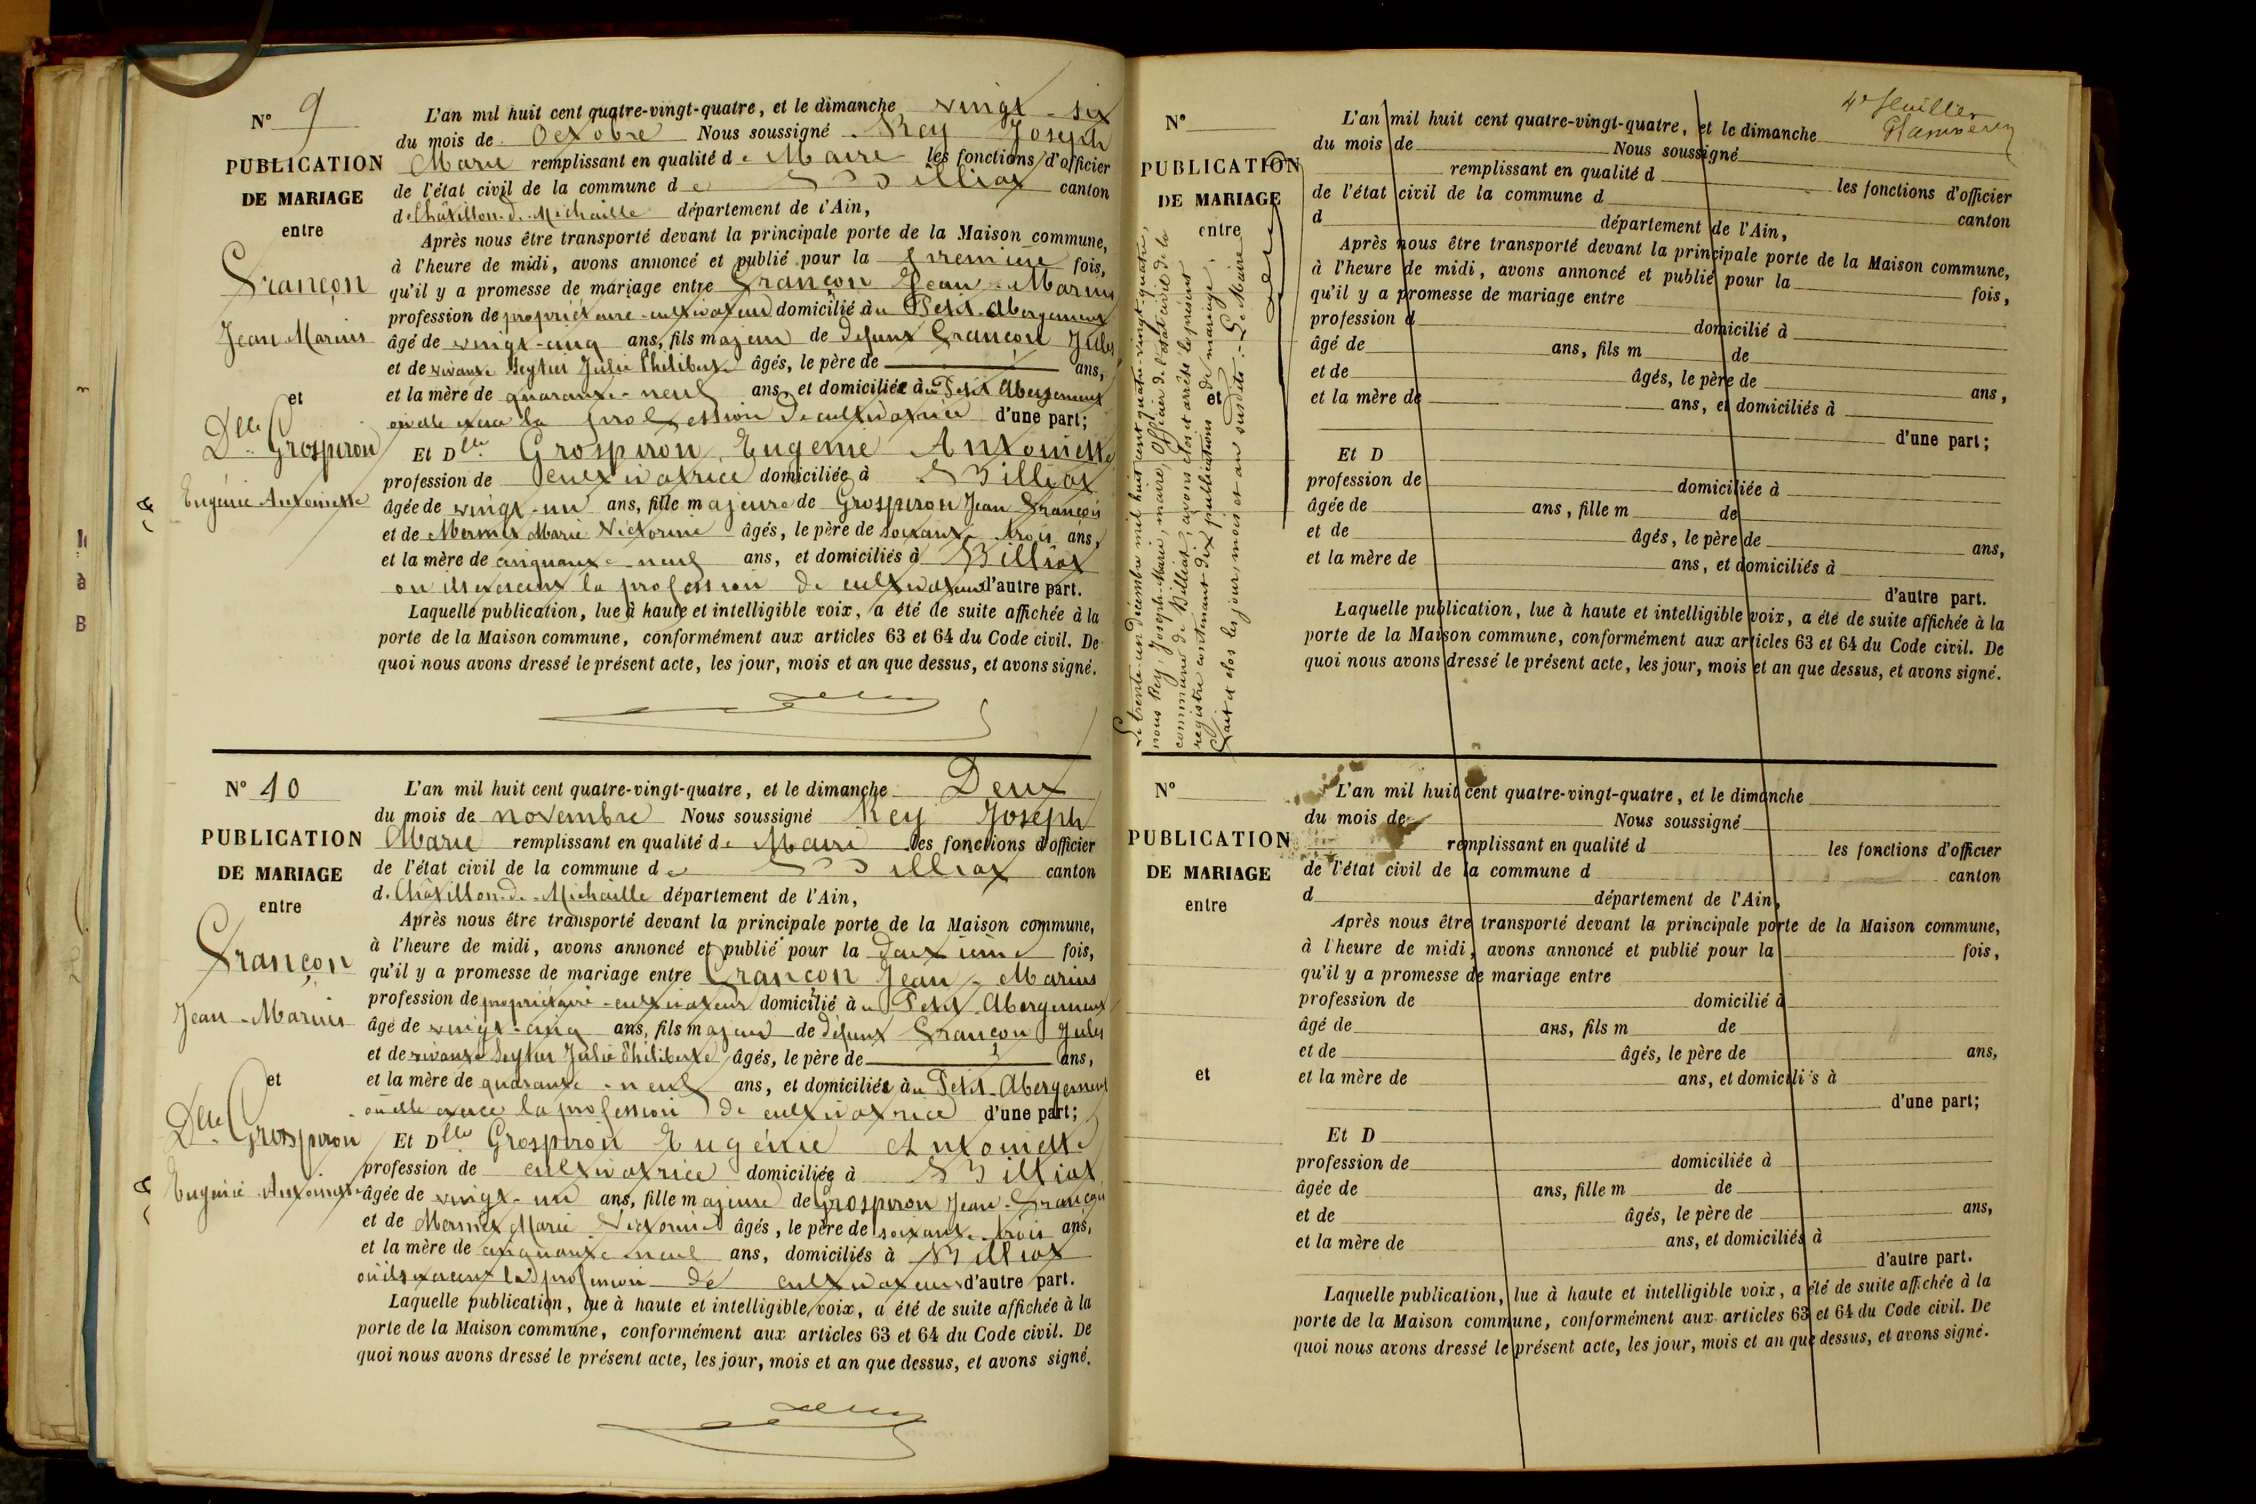 N° 9
PUBLICATION
DE MARIAGE
entre
Françon
Jean Marius
et
Dlle Grospiron
Eugénie Antoinette
L'an mil huit cent quatre-vingt-quatre, et le dimanche vingt-six
du mois de Octobre Nous soussigné Rey Joseph
Marie remplissant en qualité de Maire les fonctions d'officier
de l'état civil de la commune de Billiat canton
de Châtillon-de-Michaille département de l'Ain,
Après nous être transporté devant la principale porte de la Maison commune,
à l'heure de midi, avons annoncé et publié pour la première fois,
qu'il y a promesse de mariage entre Françon Jean-Marius
profession de propriétaire-cultivateur domicilié au Petit-Abergement
âgé de vingt-cinq ans, fils majeur de défunt Françon Jules
et de vivante Seytier Julie Philiberte âgés, le père de ans,
et la mère de quarante-neuf ans, et domiciliée au Petit-Abergement
où elle exerce la profession de cultivatrice d'une part;
Et Dlle Grospiron Eugénie Antoinette
profession de cultivatrice domiciliée à Billiat
âgée de vingt-un ans, fille majeure de Grospiron Jean-François
et de Mermet Marie Victorine âgés, le père de soixante-trois ans,
et la mère de cinquante-neuf ans, et domiciliés à Billiat
où ils exercent la profession de cultivateurs d'autre part.
Laquelle publication, lue à haute et intelligible voix, a été de suite affichée à la
porte de la Maison commune, conformément aux articles 63 et 64 du Code civil. De
quoi nous avons dressé le présent acte, les jour, mois et an que dessus, et avons signé.
Rey
N° 10
PUBLICATION
DE MARIAGE
entre
Françon
Jean-Marius
et
Dlle Grospiron
Eugénie Antoinette
L'an mil huit cent quatre-vingt-quatre, et le dimanche Deux
du mois de novembre Nous soussigné Rey Joseph
Marie remplissant en qualité de Maire les fonctions d'officier
de l'état civil de la commune de Billiat canton
de Châtillon-de-Michaille département de l'Ain,
Après nous être transporté devant la principale porte de la Maison commune,
à l'heure de midi, avons annoncé et publié pour la deuxième fois,
qu'il y a promesse de mariage entre Françon Jean-Marius
profession de propriétaire-cultivateur domicilié au Petit-Abergement
âgé de vingt-cinq ans, fils majeur de défunt Françon Jules
et de vivante Seytier Julie Philiberte âgés, le père de ans,
et la mère de quarante-neuf ans, et domiciliée au Petit-Abergement
où elle exerce la profession de cultivatrice d'une part;
Et Dlle Grospiron Eugénie Antoinette
profession de cultivatrice domiciliée à Billiat
âgée de vingt-un ans, fille majeure de Grospiron Jean-François
et de Mermet Marie Victorine âgés, le père de soixante-trois ans,
et la mère de cinquante-neuf ans, domiciliés à Billiat
où ils exercent la profession de cultivateurs d'autre part.
Laquelle publication, lue à haute et intelligible voix, a été de suite affichée à la
porte de la Maison commune, conformément aux articles 63 et 64 du Code civil. De
quoi nous avons dressé le présent acte, les jour, mois et an que dessus, et avons signé.
Rey
4e feuillet
N°
PUBLICATION
DE MARIAGE
entre
et
Le trente-un Décembre mil huit cent quatre-vingt-quatre,
nous Rey, Joseph-Marie, maire, Officier de l'état civil de la
commune de Billiat, avons clos et arrêté le présent
registre contenant dix publications de mariage.
Fait et clos les jour, mois et an susdits. - Le Maire
Rey
L'an mil huit cent quatre-vingt-quatre, et le dimanche
du mois de Nous soussigné
remplissant en qualité d les fonctions d'officier
de l'état civil de la commune d canton
d département de l'Ain,
Après nous être transporté devant la principale porte de la Maison commune,
à l'heure de midi, avons annoncé et publié pour la fois,
qu'il y a promesse de mariage entre
profession d domicilié à
âgé de ans, fils m de
et de âgés, le père de ans,
et la mère de ans, et domiciliés à
d'une part;
Et D
profession de domiciliée à
âgée de ans, fille m de
et de âgés, le père de ans,
et la mère de ans, et domiciliés à
d'autre part.
Laquelle publication, lue à haute et intelligible voix, a été de suite affichée à la
porte de la Maison commune, conformément aux articles 63 et 64 du Code civil. De
quoi nous avons dressé le présent acte, les jour, mois et an que dessus, et avons signé.
N°
PUBLICATION
DE MARIAGE
entre
et
L'an mil huit cent quatre-vingt-quatre, et le dimanche
du mois de Nous soussigné
remplissant en qualité d les fonctions d'officier
de l'état civil de la commune d canton
d département de l'Ain,
Après nous être transporté devant la principale porte de la Maison commune,
à l'heure de midi, avons annoncé et publié pour la fois,
qu'il y a promesse de mariage entre
profession de domicilié à
âgé de ans, fils m de
et de âgés, le père de ans,
et la mère de ans, et domiciliés à
d'une part;
Et D
profession de domiciliée à
âgée de ans, fille m de
et de âgés, le père de ans,
et la mère de ans, et domiciliés à
d'autre part.
Laquelle publication, lue à haute et intelligible voix, a été de suite affichée à la
porte de la Maison commune, conformément aux articles 63 et 64 du Code civil. De
quoi nous avons dressé le présent acte, les jour, mois et an que dessus, et avons signé.